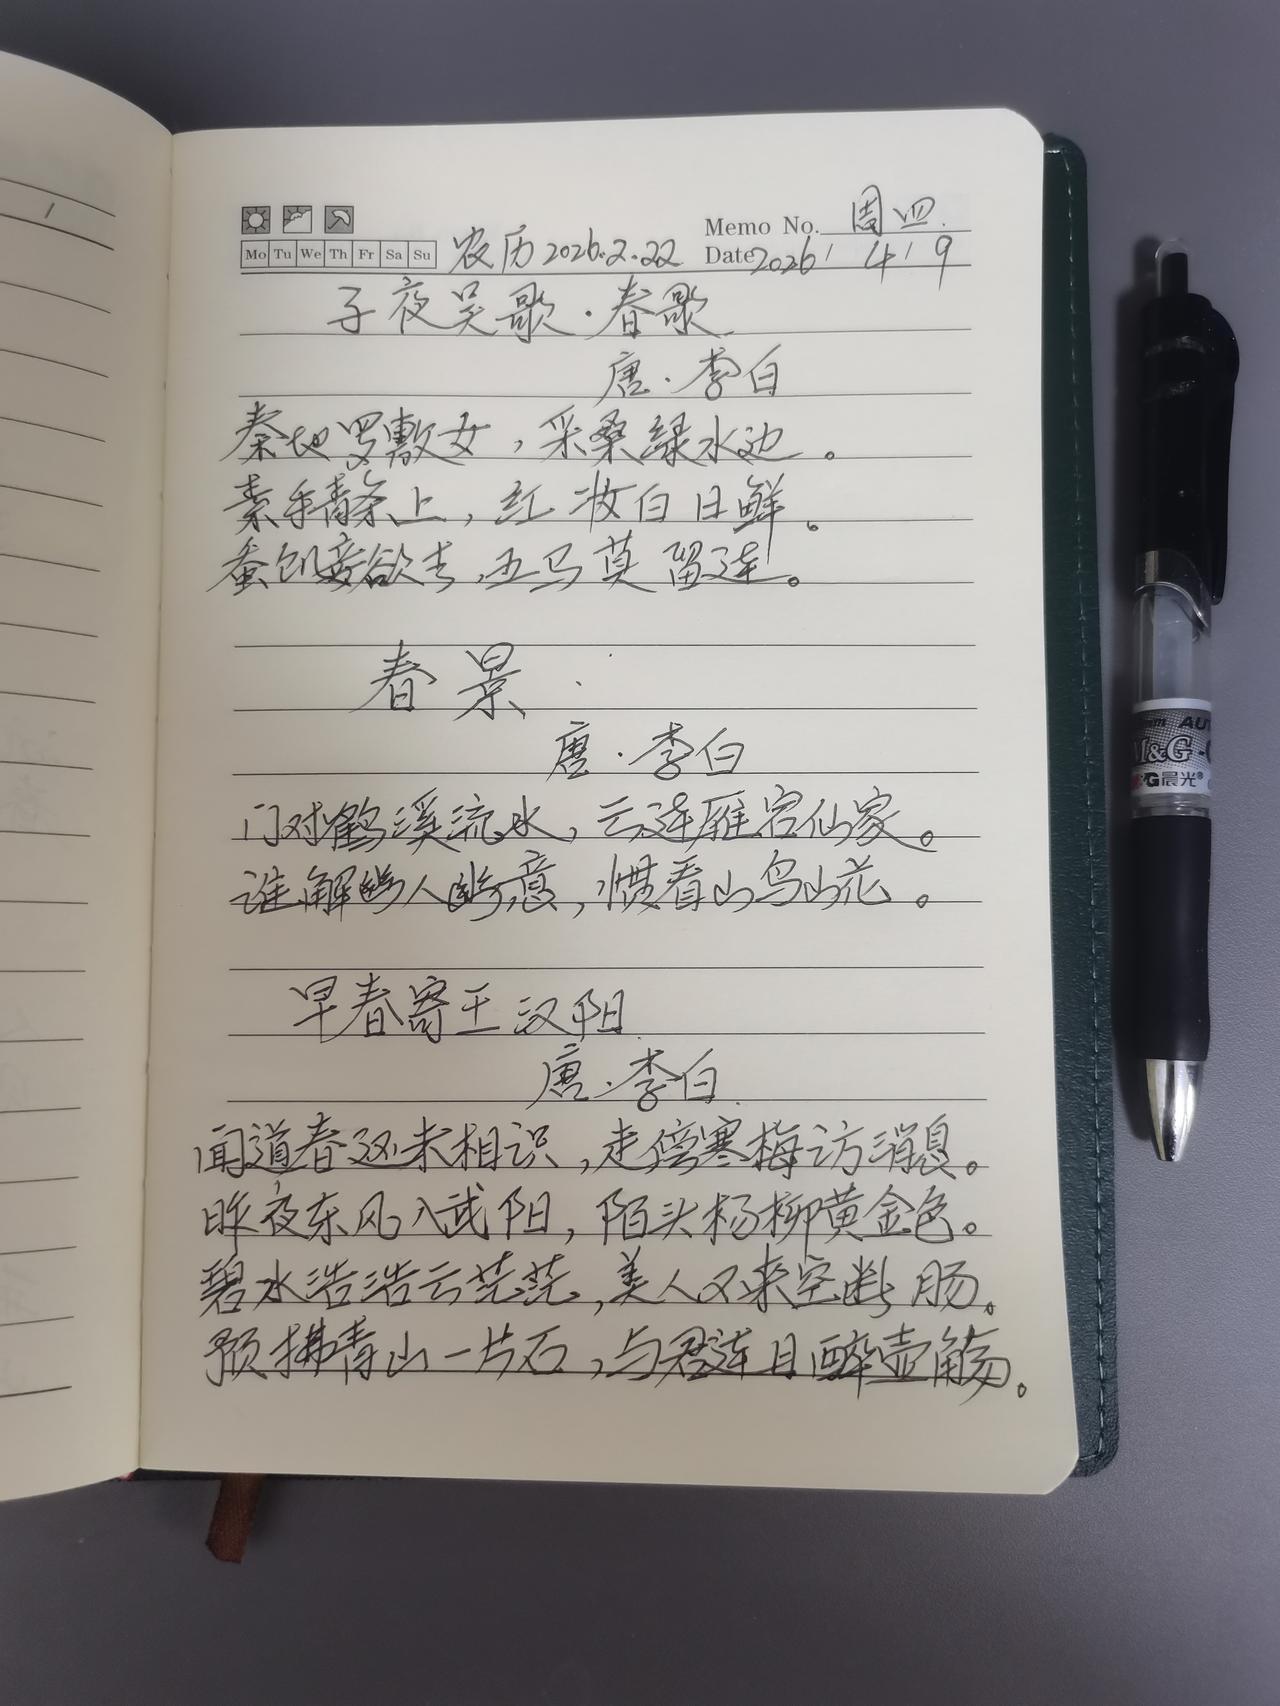 Memo No. 周四.
Mo Tu We Th Fr Sa Su 农历2026.2.22 Date 2026 / 4 / 9
子夜吴歌·春歌.
唐·李白
秦地罗敷女，采桑绿水边。
素手青条上，红妆白日鲜。
蚕饥妾欲去，五马莫留连。
春景
唐·李白
门对鹤溪流水，云连雁宕仙家。
谁解幽人幽意，惯看山鸟山花。
早春寄王汉阳
唐·李白
闻道春还未相识，走傍寒梅访消息。
昨夜东风入武阳，陌头杨柳黄金色。
碧水浩浩云茫茫，美人不来空断肠。
预拂青山一片石，与君连日醉壶觞。
AUT
M&G
M&G晨光®